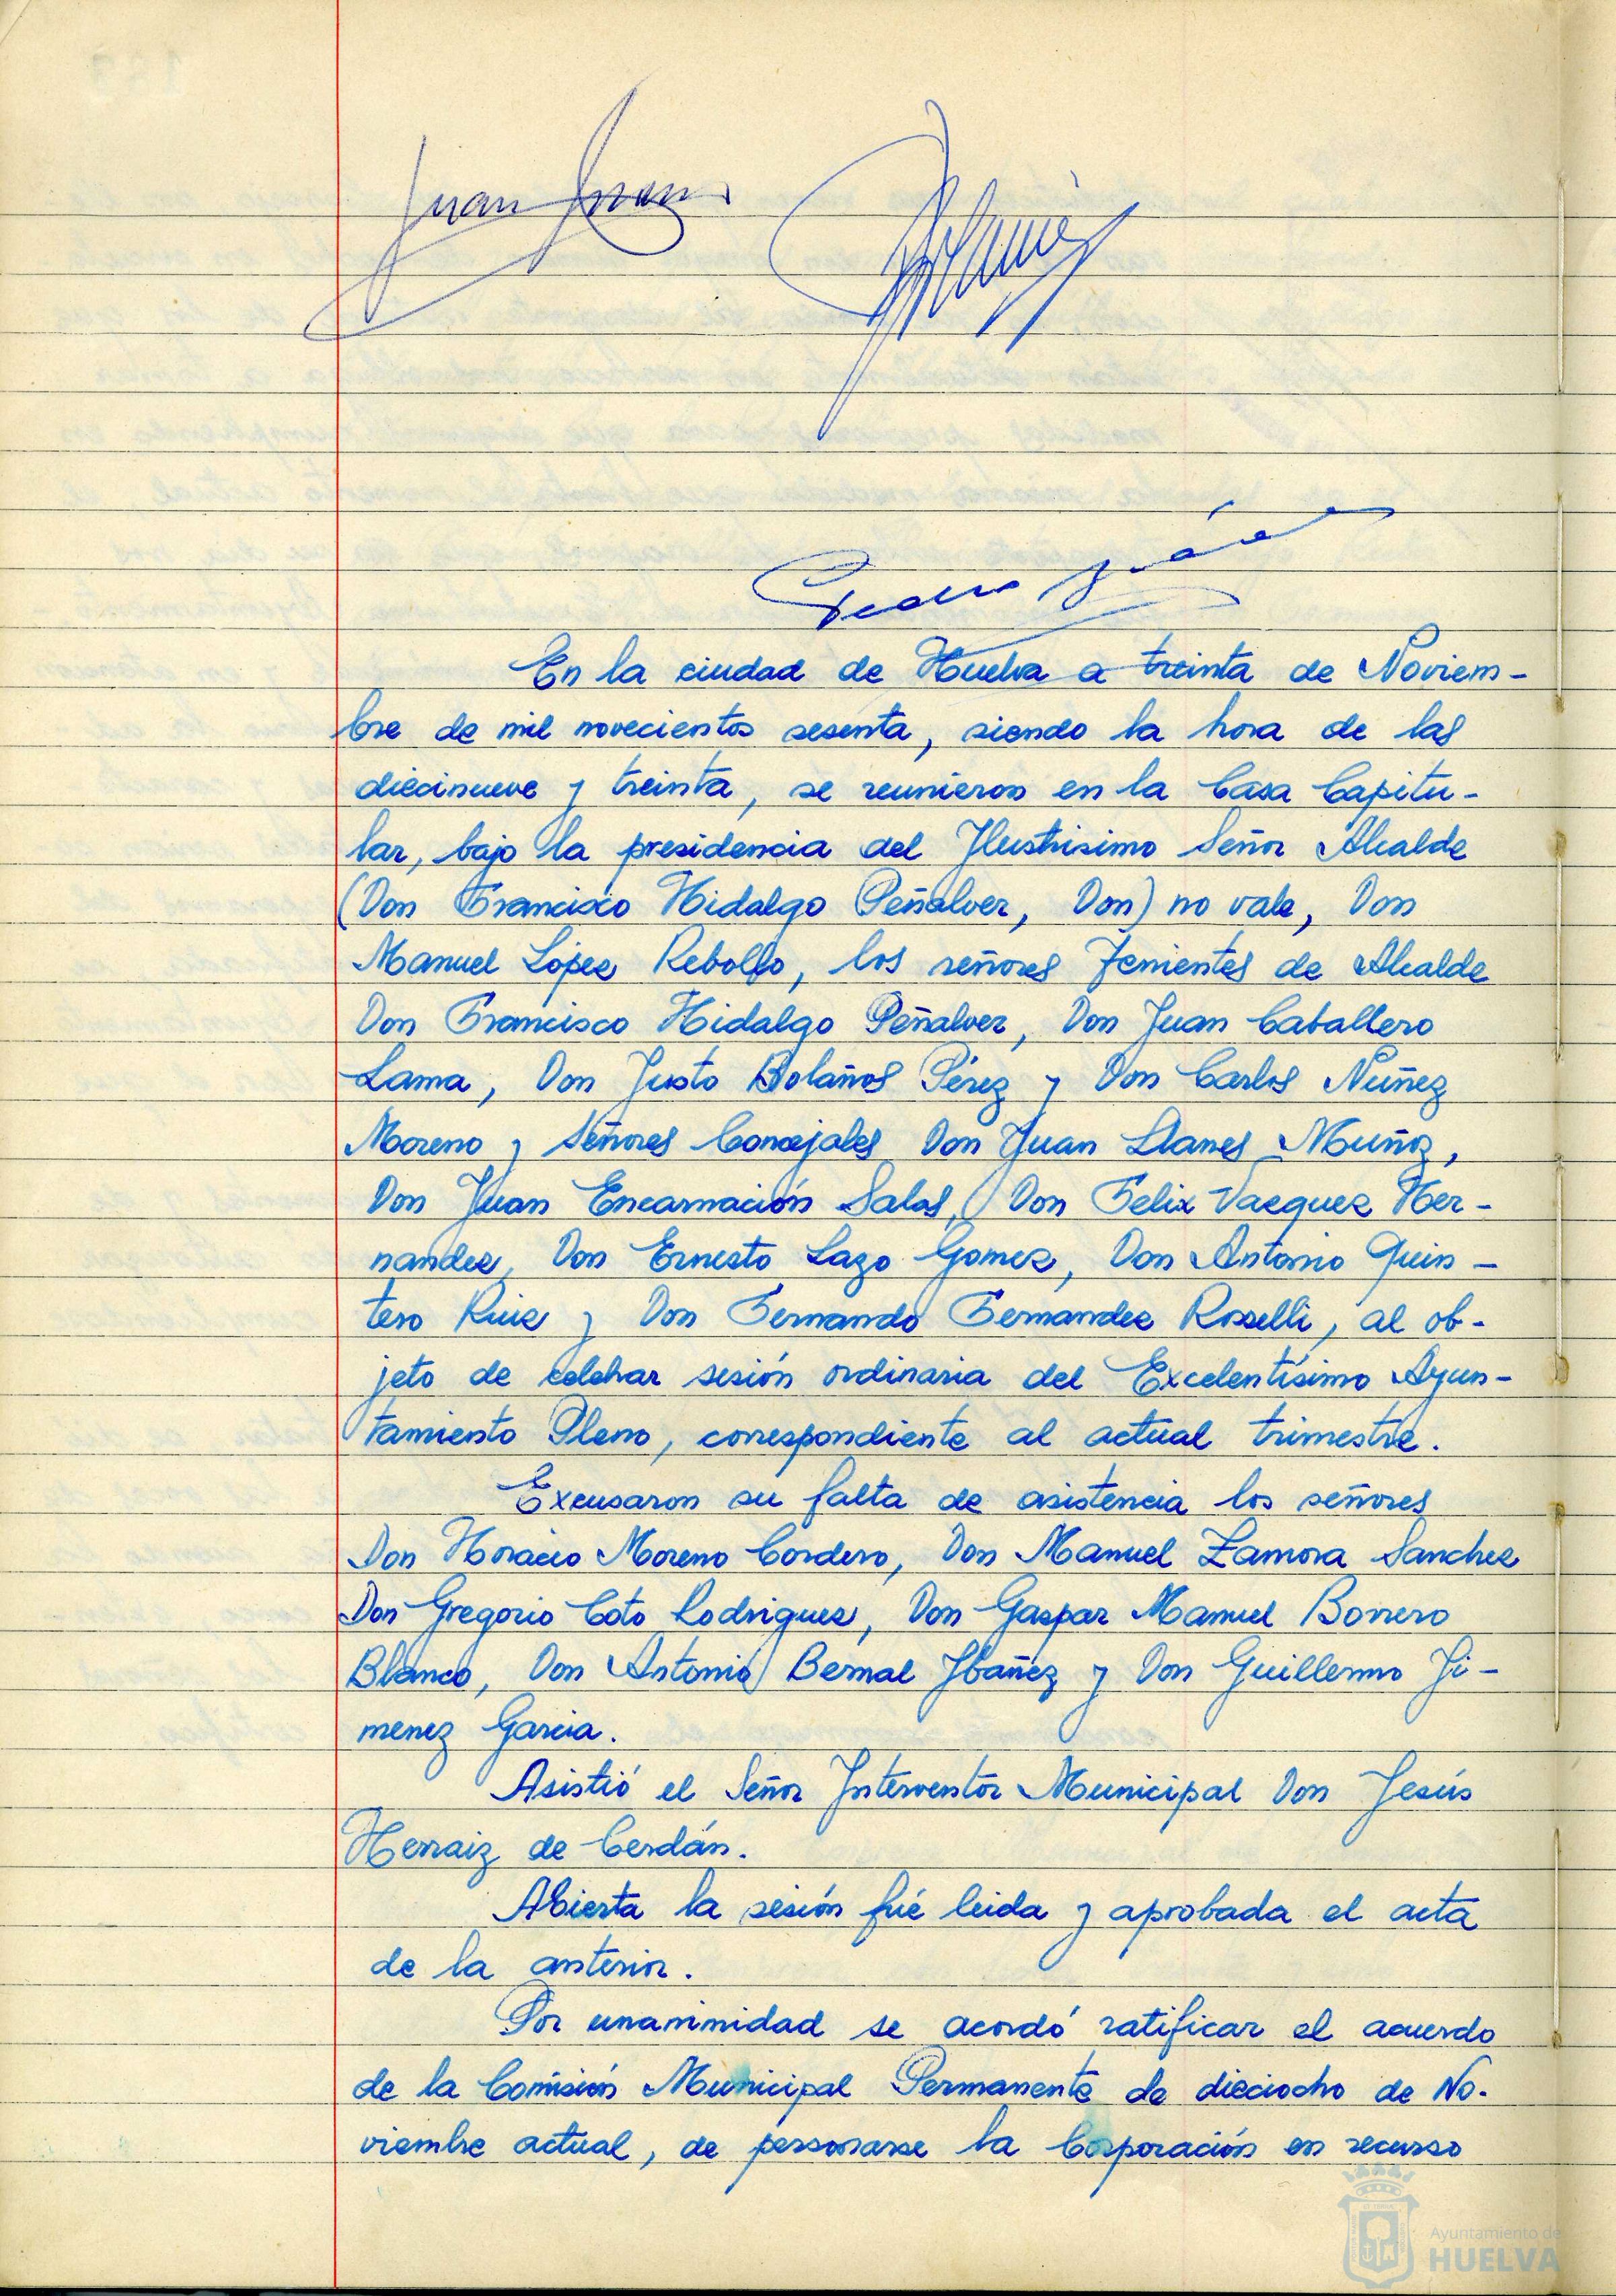 Juan
Pedro
En la ciudad de Huelva a treinta de Noviem-
bre de mil novecientos sesenta, siendo la hora de las
diecinueve y treinta, se reunieron en la Casa Capitu-
lar, bajo la presidencia del Ilustrisimo Señor Alcalde
(Don Francisco Hidalgo Peñalver, Don) no vale, Don
Manuel López Rebollo, los señores Tenientes de Alcalde
Don Francisco Hidalgo Peñalver, Don Juan Caballero
Lama, Don Justo Bolaños Pérez y Don Carlos Núñez
Moreno y Señores Concejales Don Juan Llanes Muñoz,
Don Juan Encarnación Salas, Don Felix Vazquez Her-
nandez, Don Ernesto Lazo Gomez, Don Antonio Quin-
tero Ruiz y Don Fernando Fernandez Rosselli, al ob-
jeto de celebrar sesión ordinaria del Excelentísimo Ayun-
tamiento Pleno, correspondiente al actual trimestre.
Excusaron su falta de asistencia los señores
Don Horacio Moreno Cordero, Don Manuel Zamora Sanchez
Don Gregorio Coto Rodriguez, Don Gaspar Manuel Borrero
Blanco, Don Antonio Bernal Ibañez y Don Guillermo Ji-
menez Garcia.
Asistió el Señor Interventor Municipal Don Jesús
Herraiz de Cerdán.
Abierta la sesión fué leida y aprobada el acta
de la anterior.
Por unanimidad se acordó ratificar el acuerdo
de la Comisión Municipal Permanente de dieciocho de No-
viembre actual, de personarse la Corporación en recurso
Ayuntamiento de
HUELVA